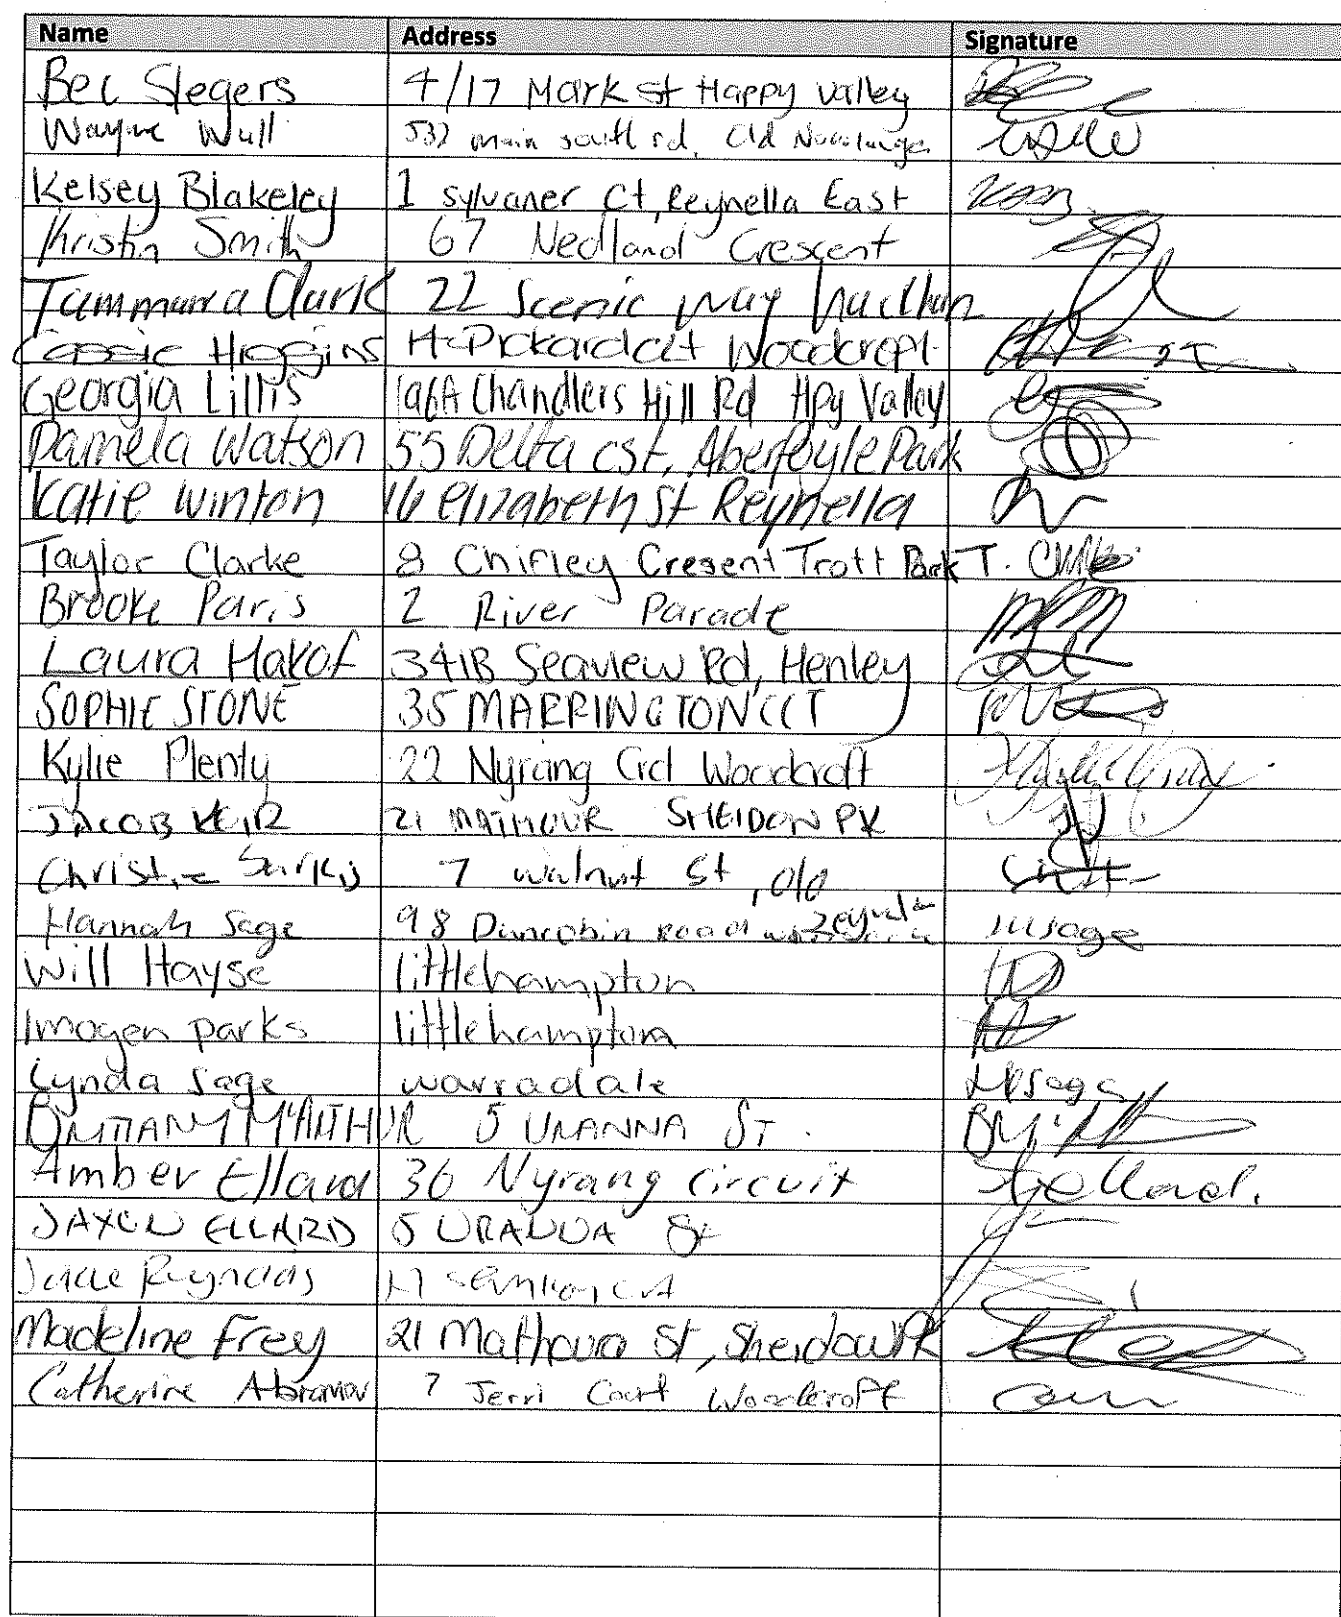 Name Address Signature
Bec Slegers 4/17 Mark st Happy valley
Wayne Wull 532 main south rd, Old Noarlunga
Kelsey Blakeley 1 sylvaner Ct, Reynella East
Kristin Smith 67 Nedland Crescent
Tammara Clark 22 Scenic way
Cassie Higgins Woodcroft
Georgia Lillis 196A Chandlers Hill Rd Hpy Valley
Pamela Watson 55 Delta cst, Aberfoyle Park
Katie Winton 16 Elizabeth St Reynella
Taylor Clarke 8 Chifley Cresent Trott Park T.
Brooke Paris 2 River Parade
Laura Hakof 341B Seaview Rd, Henley
SOPHIE STONE 35 MARRINGTON CCT
Kylie Plenty 22 Nyrang Crct Woodcroft
JACOB KEIR 21 MATHOUR SHEIDOW PK
Christie Sarkis 7 walnut St, Old
Hannah Sage 98 Dunrobin Road Reynella msage
Will Hayse littlehampton
Imogen parks littlehampton
Lynda Sage warradale Sage
BRITTANY McARTHUR 5 URANNA ST.
Amber Ellard 36 Nyrang Circuit Ellard.
JAXON ELLARD 5 URANNA St
Reynolds
Madeline Frey 21 Mathoura St, Sheidow Pk
Catherine Abramov 7 Jerri Court Woodcroft